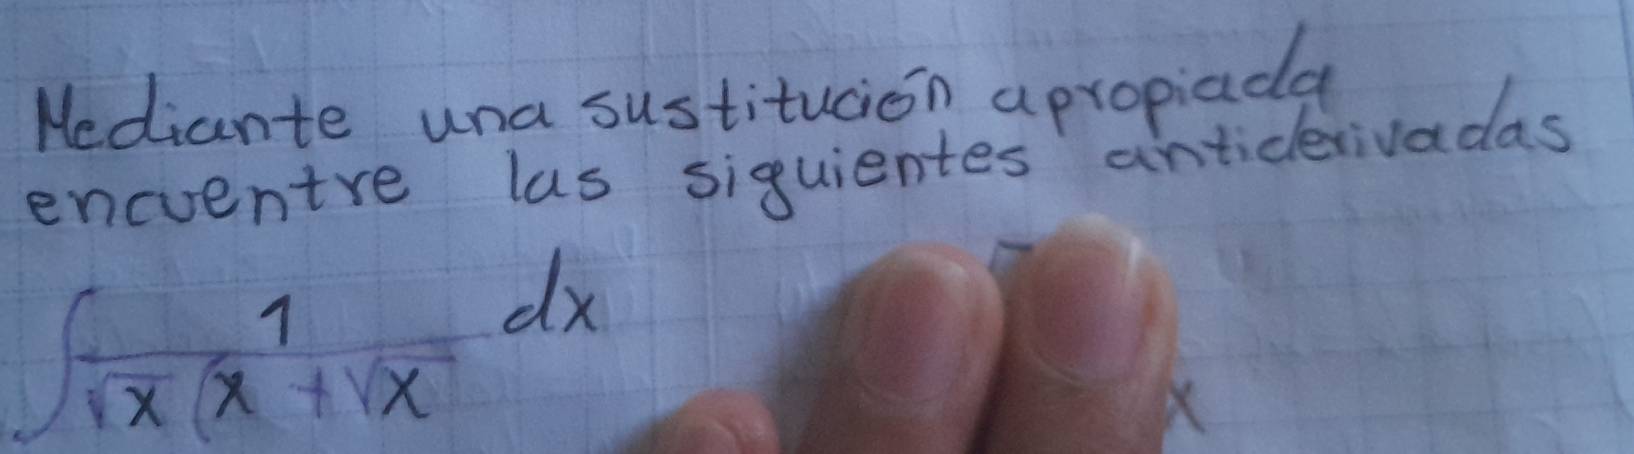 Mediante una sustitución apropiada
encuentre las siguientes antiderivadas
∫ 1/(√x (x + √x) dx
x